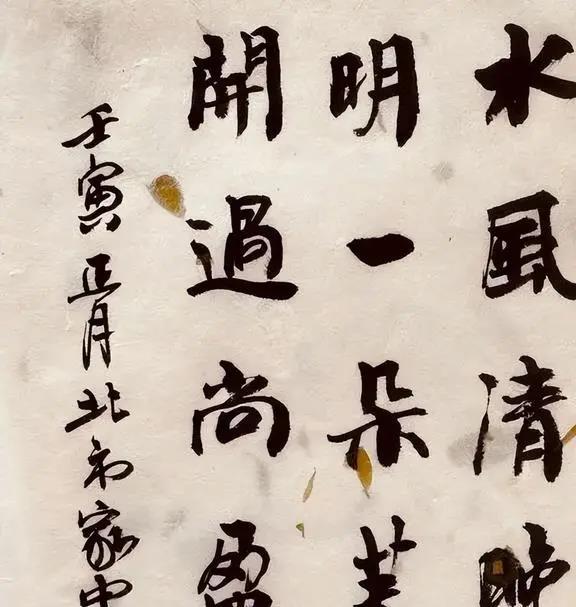 水風清晚
明一朵芙
開過尚盈
壬寅正月北京家中